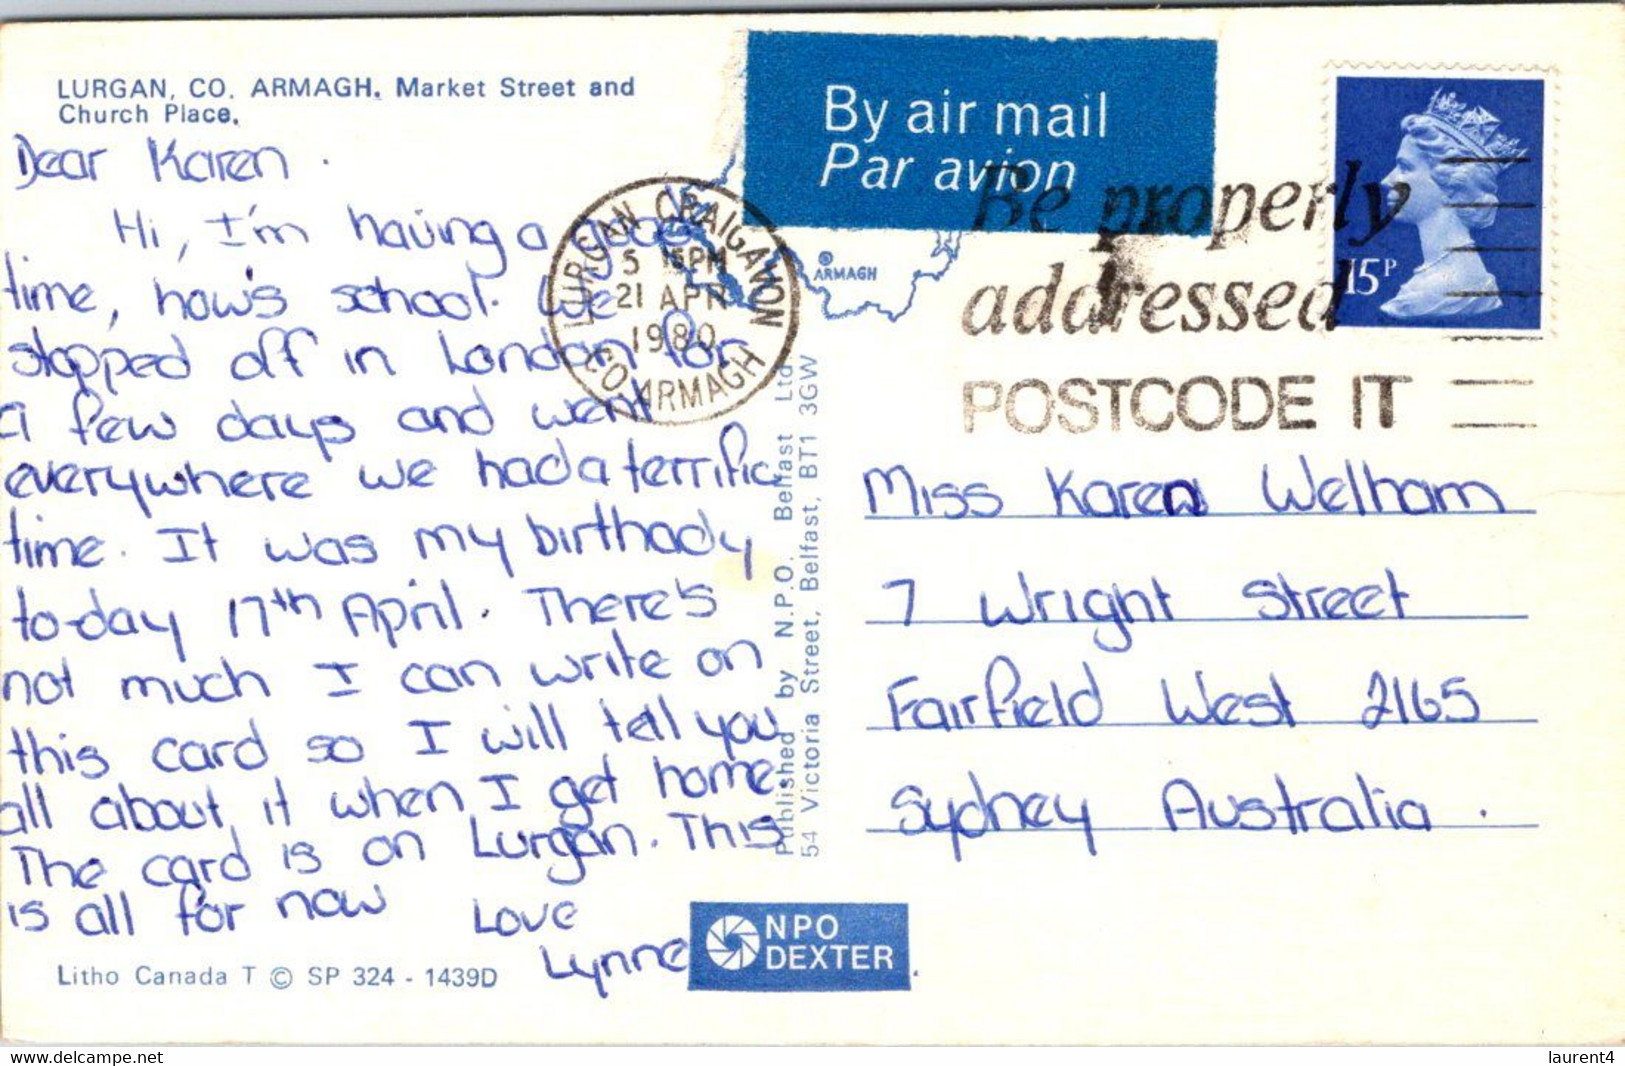 LURGAN, CO. ARMAGH, Market Street and
Church Place.
Dear Karen.
Hi, I'm having a good
time, how's school. We
stopped off in London for
a few days and went
everywhere we had a terrific
time. It was my birthady
to-day 17th April. There's
not much I can write on
this card so I will tell you
all about it when I get home
The card is on Lurgan. This
is all for now Love
Lynne
Litho Canada T © SP 324 - 1439D
NPO
DEXTER
Published by N.P.O. Belfast Ltd
54 Victoria Street, Belfast, BT1 3GW
By air mail
Par avion
ARMAGH
LURGAN CRAIGAVON
5 15PM
21 APR
1980
CO. ARMAGH
Be properly
addressed
POSTCODE IT
15P
Miss Karen Welham
7 Wright Street
Fairfield West 2165
Sydney Australia.
laurent4